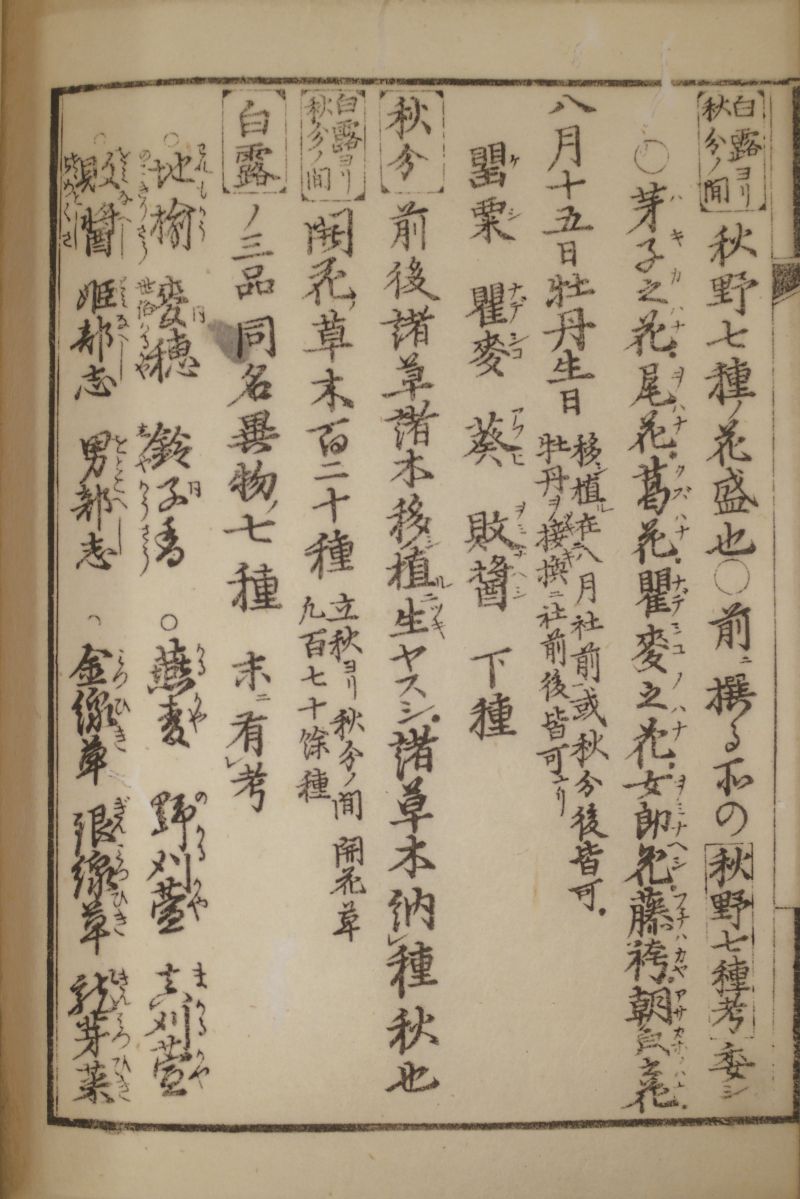 白露ヨリ
秋分ノ間
秋野七種ノ花盛也○前ニ撰る所の秋野七種考委シ
○芽子之花尾花葛花瞿麥之花女郎花藤袴朝皃之花
八月十五日牡丹生日
移シ植ル在八月社前或秋分後皆可
牡丹ヲ接換ニ社前後皆可ナリ
罌粟 瞿麥 葵 敗醬 下種
秋分 前後諸草諸木移シ植ルニツキ生ヤスシ諸草木納種秋也
白露ヨリ
秋分ノ間
開花ノ草木百二十種
立秋ヨリ秋分ノ間開花草
九百七十餘種
白露ノ三品同名異物ノ七種 末ニ有考
○地榆 麥穂 鈴子香 ○燕麥 野刈萱 真刈萱
○敗醬 姫部志 男部志 ○金線草 銀線草 龍芽菜